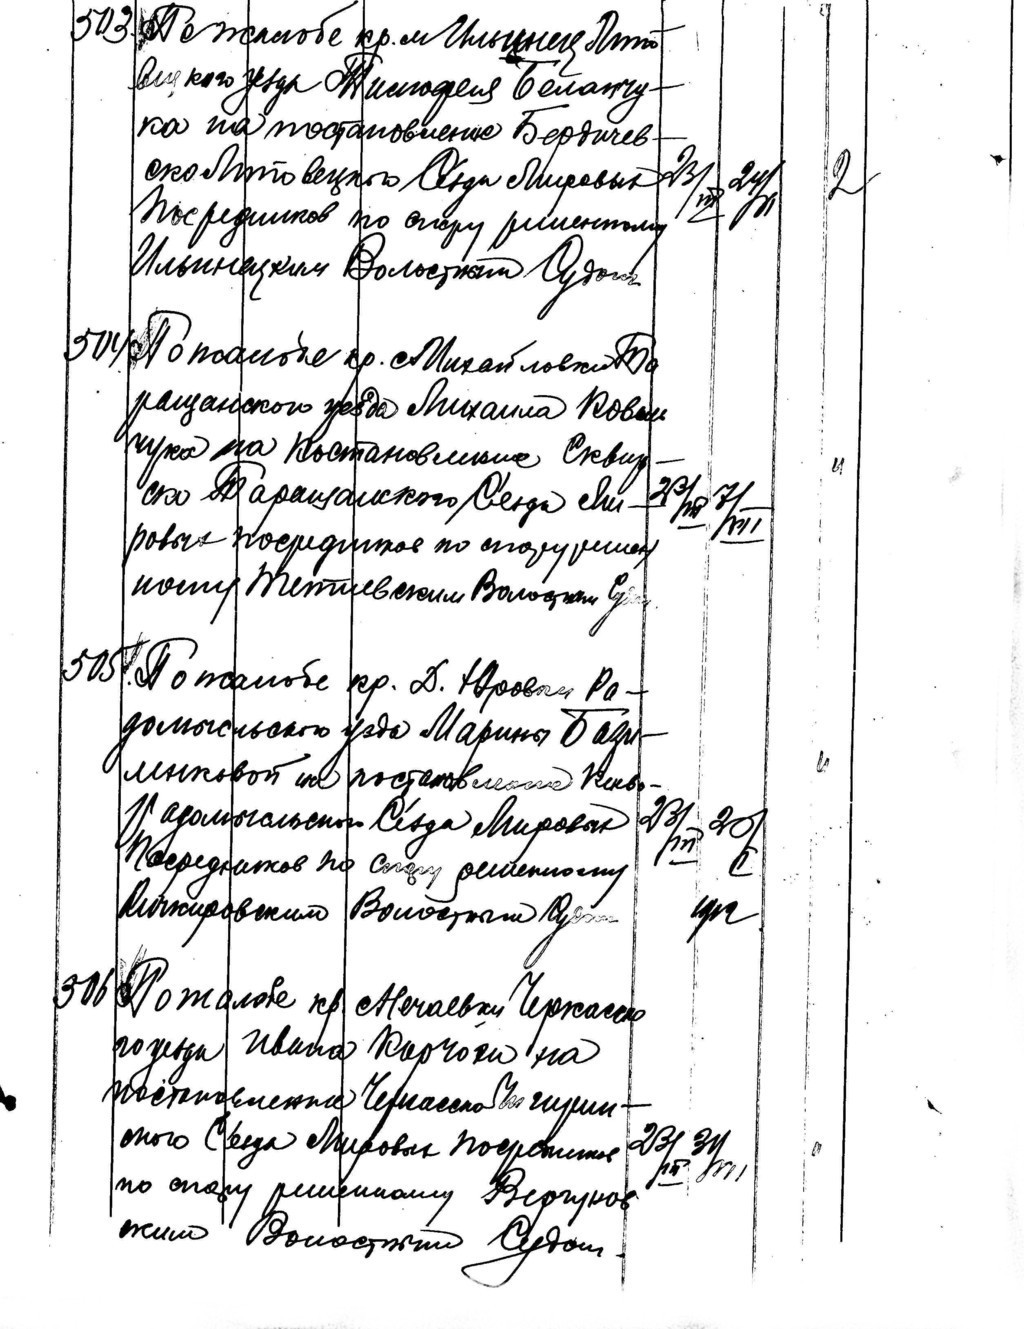 503. По жалобе кр. м Ильинец Липо
вецкого уезда Тимофея Беланчу-
ка на постановление Бердичев-
ско Липовецкого Съезда Мировых 23/III 24/VI 2
Посредников по спору решенному
Ильинецким Волостным Судом
504. По жалобе кр. с Михайловки Та
ращанского уезда Михаила Коваль
чука на постановление Сквир-
ско Таращанского Съезда Ми- 23/III 7/VIII "
ровых посредников по спору решен
ному Тетиевским Волостным Судом
505. По жалобе кр. Д. Юровки Ра-
домысльского уезда Марины
ленковой на постановление Киево-
Радомысльского Съезда Мировых 23/III 20/I "
Посредников по спору решенному
Волостным Судом
506 По жалобе кр с Нечаевки Черкасско
го уезда Ивана на
постановление Черкасско Чигирин-
ского Съезда Мировых посредников 23/III 31/VIII "
по спору решенному Вергунов
ским Волостным Судом.